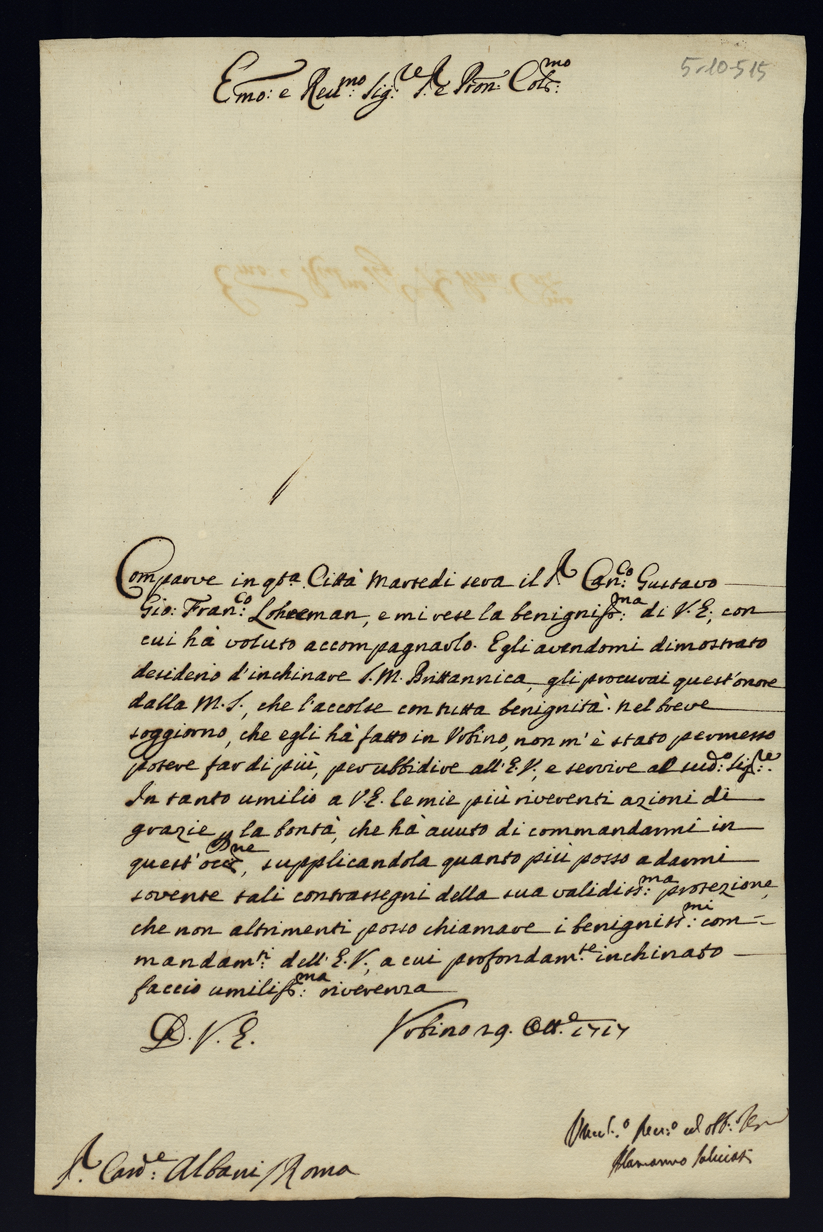 5-10-515
Emo: e Reu.mo Sig.re P.re e Pron: Col.mo
Comparve in qta Città Martedi sera il S.r Can.co Gustavo
Gio: Fran.co Loheman, e mi rese la benigniss:ma di V. E; con
cui hà voluto accompagnarlo. Egli avendomi dimostrato
desiderio d'inchinare S. M. Britannica, gli procurai quest'onore
dalla M. S., che l'accolse con tutta benignità. Nel breve
soggiorno, che egli hà fatto in Vrbino, non m'è stato permesso
potere far di più, per ubbidire all'E. V., e servire al sud.o Sig.re
In tanto umilio a V. E. le mie più riverenti azioni di
grazie p la bontà, che hà avuto di commandarmi in
quest'occne, supplicandola quanto più posso a darmi
sovente tali contrassegni della sua validiss:ma protezione,
che non altrimenti posso chiamare i benigniss:mi com=
mandam.ti dell'E. V., a cui profondam.te inchinato
faccio umiliss:ma riverenza
D. V. E. Vrbino 29. Ott.e 1717
S.r Card.e Albani / Roma
Alamanno Salviati